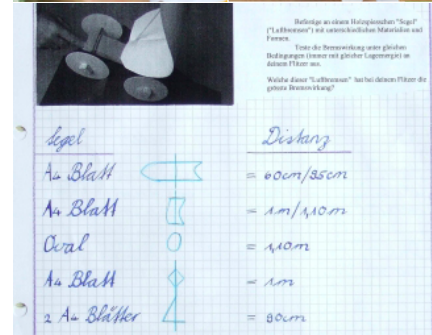 Befestige an einem Holzspiesschen "Segel"
("Luftbremsen") mit unterschiedlichen Materialien und
Formen.
Teste die Bremswirkung unter gleichen
Bedingungen (immer mit gleicher Lageenergie) an
deinem Flitzer aus.
Welche dieser "Luftbremsen" hat bei deinem Flitzer die
grösste Bremswirkung?
Segel Distanz
A4 Blatt = 60cm/85cm
A4 Blatt = 1m/1,10m
Oval = 1,10m
A4 Blatt = 1m
2 A4 Blätter = 90cm